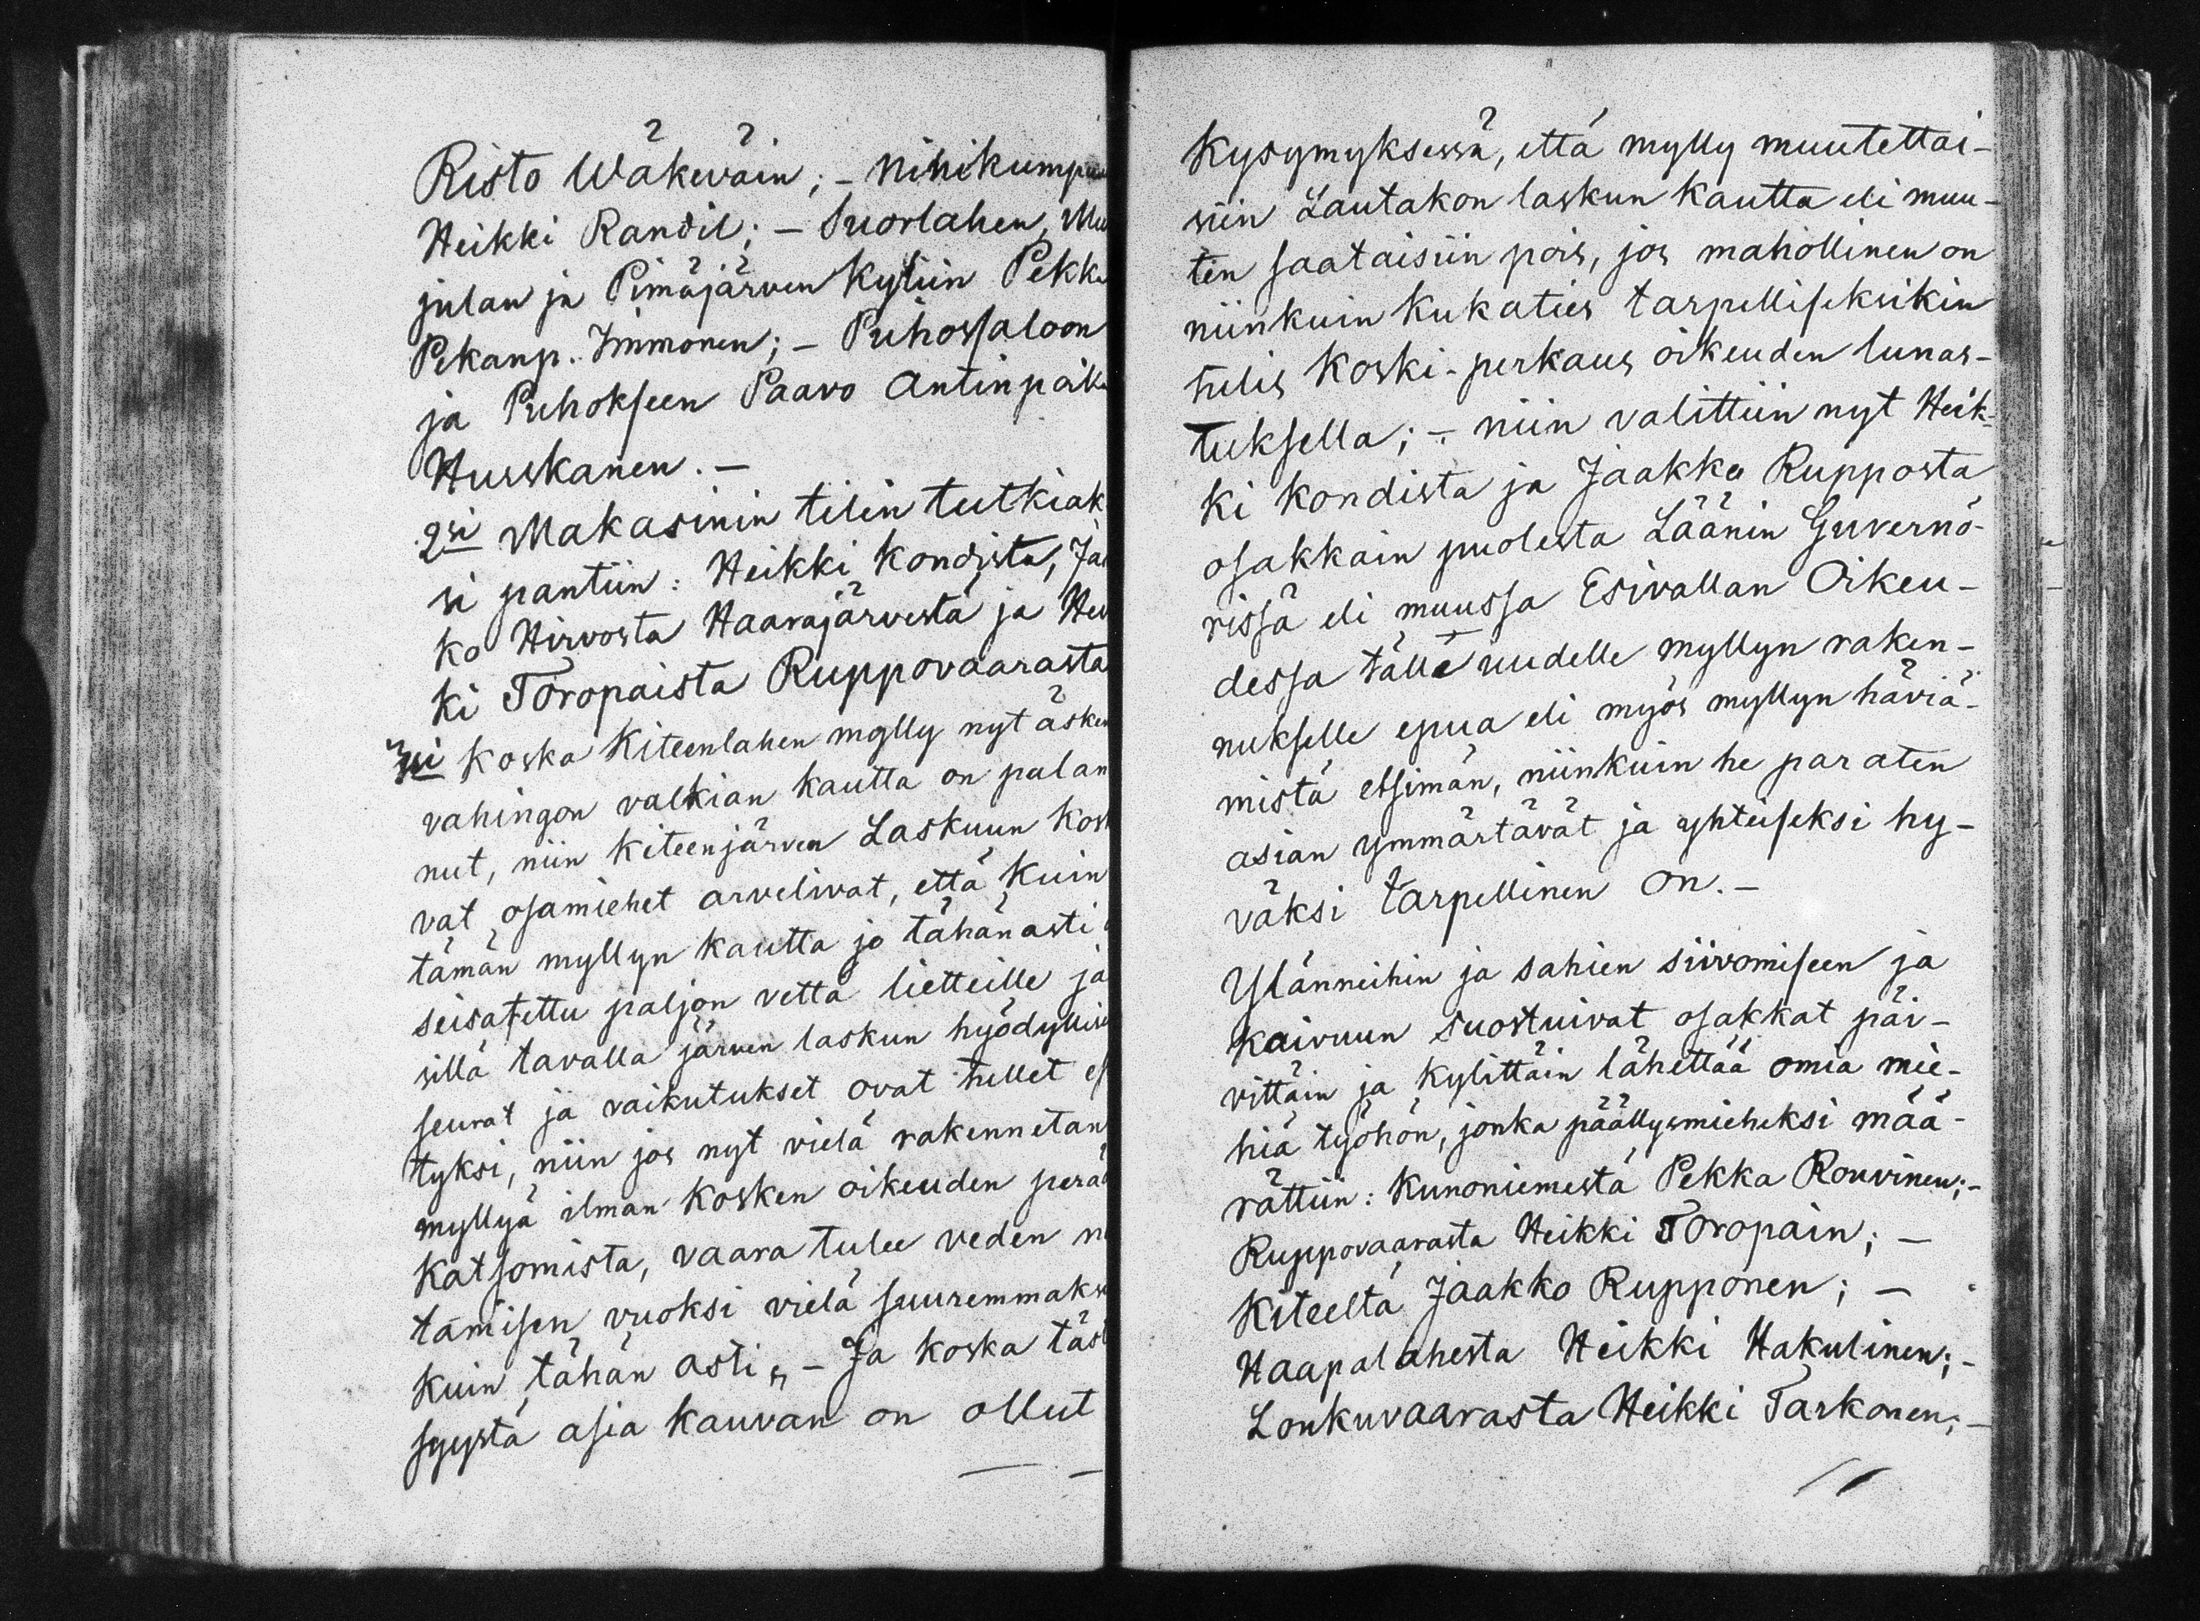 Risto Wäkeväin; – Niinikumpuu
Heikki Randil; – Suorlahen, Mu
julan ja Pimäjärven kyliin Pekka
Pekanp. Immonen; – Puhossaloon
ja Puhokseen Paavo Antinpoika
Husskanen. –
2si Makasinin tilin tutkiak
si pantiin: Heikki Kondista, Jaa
ko Hirvosta Haarajärvestä ja Hei
ki Toropaista Ruppovaarasta
3si Koska Kiteenlahen mylly nyt äsken
vahingon valkian kautta on palan
nut, niin Kiteenjärven Laskuun kos
vat osamiehet arvelivat, että kuin
tämän myllyn kautta jo tähänasti
seisatettu paljon vettä lietteille ja
sillä tavalla järven laskun hyödyllise
seurat ja vaikutukset ovat tullet es
tyksi, niin jos nyt vielä rakennetan
myllyä ilman kosken oikeuden perää
katsomista, vaara tulee veden n
tämisen vuoksi vielä suuremmaksi
kuin tähän asti, – Ja koska täst
syystä asia kauvan on ollut
kysymyksessä, että mylly muutettai-
siin Lautakon laskun kautta eli muu-
ten saataisiin pois, jos mahollinen on
niinkuin kukaties tarpelliseksikin
tulis koski-perkaus oikeuden lunas-
tuksella; – niin valittiin nyt Heik-
ki Kondista ja Jaakko Rupposta
osakkain puolesta Läänin Guvernö-
rissä eli muussa Esivallan Oikeu-
dessa tälle uudelle myllyn raken-
nukselle epua eli myös myllyn häviä-
mistä etsimän, niinkuin he paraten
asian ymmärtävät ja yhteiseksi hy-
väksi tarpellinen on. –
Ylänneihin ja sahien siivomiseen ja
kaivuun suostuivat osakkat päi-
vittäin ja kylittäin lähettää omia mie-
hiä työhön, jonka päällysmieheksi mää-
rättiin: Kunoniemestä Pekka Rouvinen; –
Ruppovaarasta Heikki Toropain; –
Kiteeltä Jaakko Rupponen; –
Haapalahesta Heikki Hakulinen; –
Loukuvaarasta Heikki Tarkonen; –